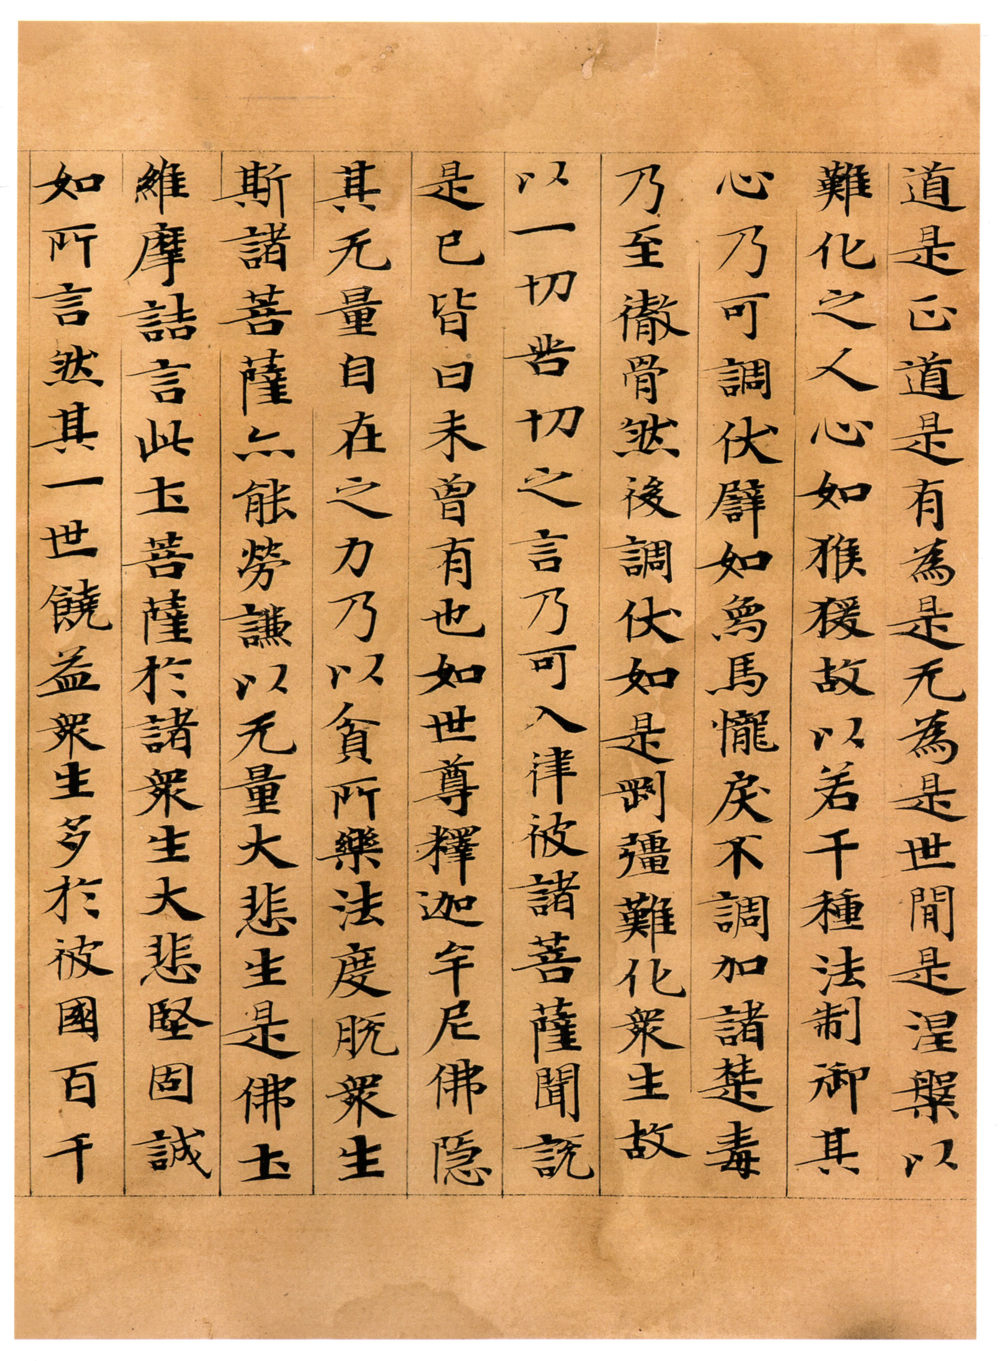 道是正道是有為是无為是世間是涅槃以
難化之人心如猴猨故以若干種法制御其
心乃可調伏譬如為馬憹戾不調加諸楚毒
乃至徹骨然後調伏如是剛彊難化衆生故
以一切苦切之言乃可入律彼諸菩薩聞説
是已皆曰未曾有也如世尊釋迦牟尼佛隐
其无量自在之力乃以貧所樂法度脱衆生
斯諸菩薩亦能勞謙以无量大悲生是佛土
維摩詰言此土菩薩於諸衆生大悲堅固誠
如所言然其一世饒益衆生多於彼國百千